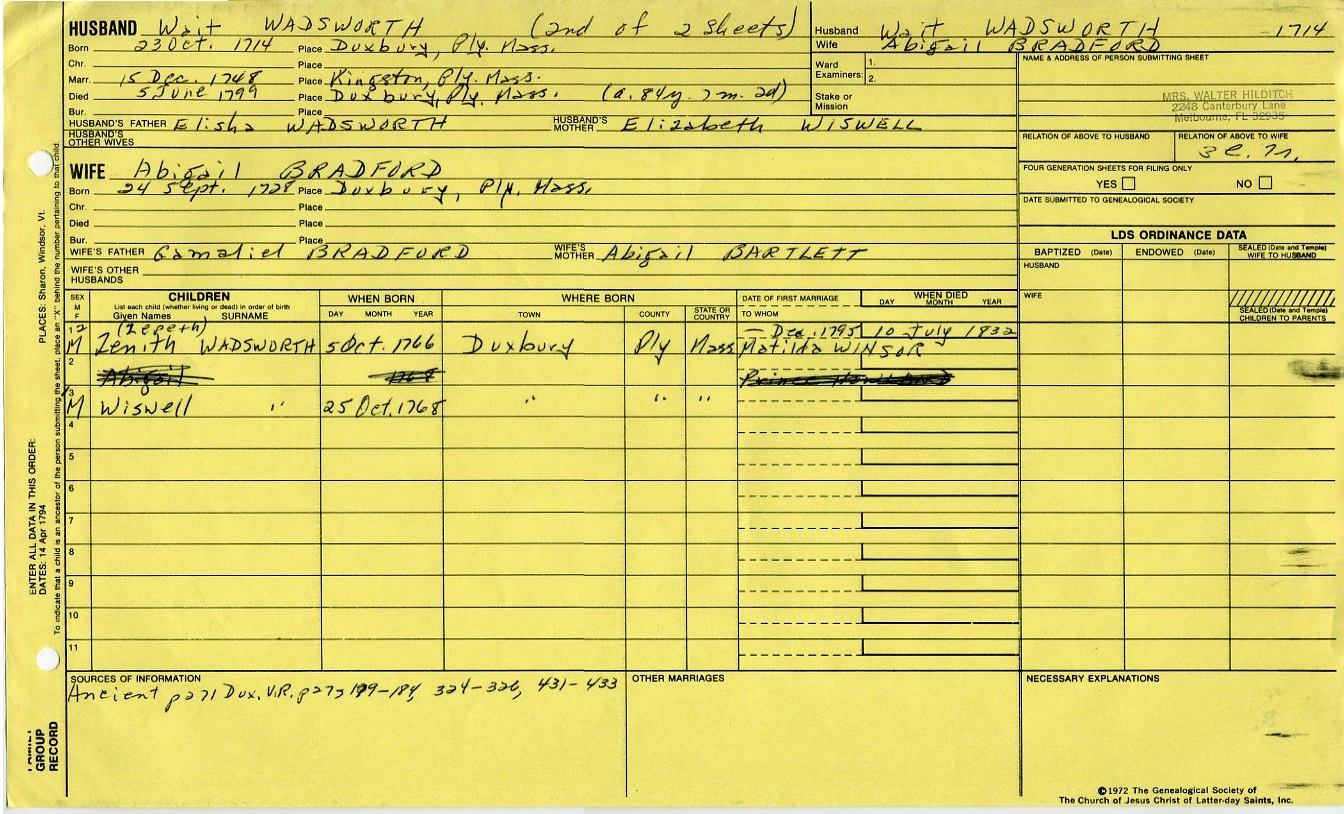 HUSBAND Wait WADSWORTH (2nd of 2 sheets)
Born 23 Oct. 1714 Place Duxbury, Ply. Mass.
Chr. Place
Marr. 15 Dec. 1748 Place Kingston, Ply. Mass.
Died 5 June 1799 Place Duxbury, Ply. Mass. (a. 84y. 7m. 2d)
Bur. Place
HUSBAND'S FATHER Elisha WADSWORTH HUSBAND'S MOTHER Elizabeth WISWELL
HUSBAND'S OTHER WIVES
WIFE Abigail BRADFORD
Born 24 Sept. 1728 Place Duxbury, Ply. Mass.
Chr. Place
Died Place
Bur. Place
WIFE'S FATHER Gamaliel BRADFORD WIFE'S MOTHER Abigail BARTLETT
WIFE'S OTHER HUSBANDS
Husband Wait WADSWORTH -1714
Wife Abigail BRADFORD
Ward Examiners: 1. 2.
Stake or Mission
NAME & ADDRESS OF PERSON SUBMITTING SHEET
MRS. WALTER HILDITCH
2248 Canterbury Lane
Melbourne, FL 32935
RELATION OF ABOVE TO HUSBAND RELATION OF ABOVE TO WIFE
FOUR GENERATION SHEETS FOR FILING ONLY
YES NO
DATE SUBMITTED TO GENEALOGICAL SOCIETY
LDS ORDINANCE DATA
BAPTIZED (Date) ENDOWED (Date) SEALED (Date and Temple) WIFE TO HUSBAND
HUSBAND
WIFE
SEALED (Date and Temple) CHILDREN TO PARENTS
SEX M F
CHILDREN
List each child (whether living or dead) in order of birth
Given Names SURNAME
WHEN BORN
DAY MONTH YEAR
WHERE BORN
TOWN COUNTY STATE OR COUNTRY
DATE OF FIRST MARRIAGE
TO WHOM
WHEN DIED
DAY MONTH YEAR
12 (Zepeth) — Dec. 1795 10 July 1832
M Zenith WADSWORTH 5 Oct. 1766 Duxbury Ply Mass Matilda WINSOR
2
Abigail 1768
3
M Wiswell " 25 Oct. 1768 " " "
4
5
6
7
8
9
10
11
SOURCES OF INFORMATION
Ancient p271 Dux. V.R. 324-326, 431-433
OTHER MARRIAGES
NECESSARY EXPLANATIONS
©1972 The Genealogical Society of
The Church of Jesus Christ of Latter-day Saints, Inc.
PLACES: Sharon, Windsor, Vt.
ENTER ALL DATA IN THIS ORDER:
DATES: 14 Apr 1794
To indicate that a child is an ancestor of the person submitting the sheet, place an "X" behind the number pertaining to that child.
FAMILY GROUP RECORD